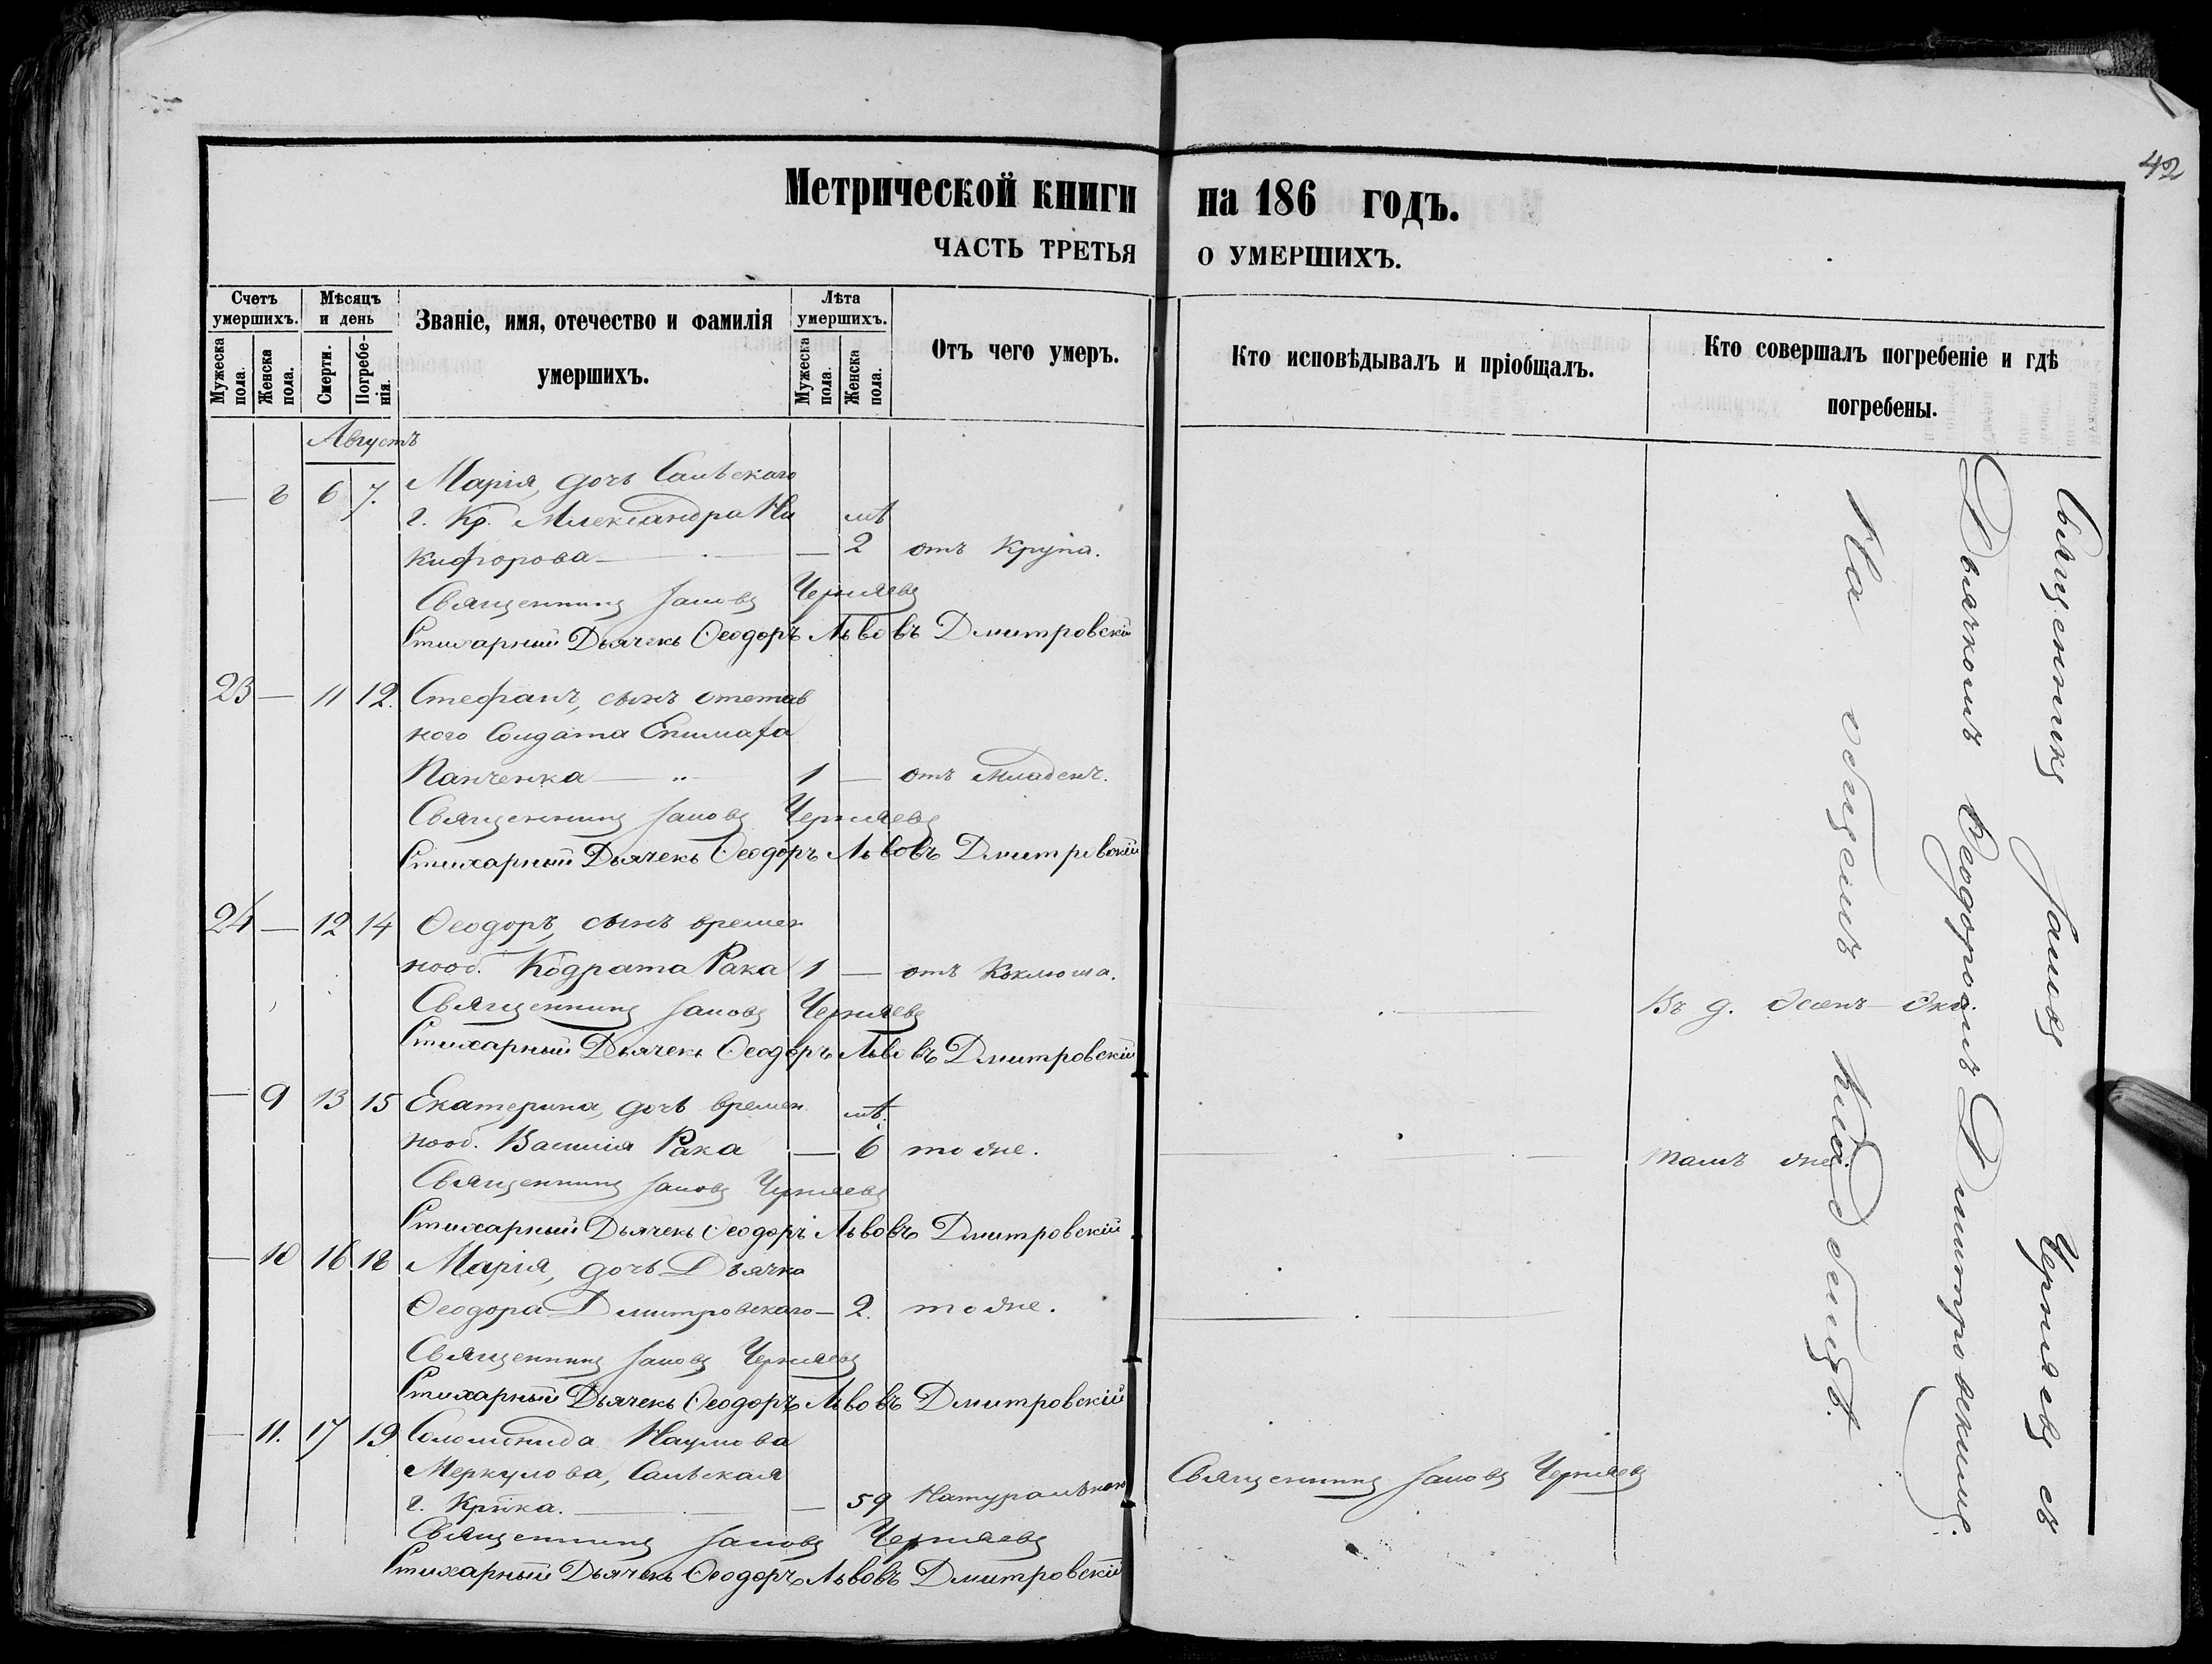 42
Метрической книги на 186 годъ.
ЧАСТЬ ТРЕТЬЯ О УМЕРШИХЪ.
Счетъ умершихъ.
Мужеска пола.
Женска пола.
Мѣсяцъ и день
Смерти.
Погребе-нія.
Званіе, имя, отечество и фамилія умершихъ.
Лѣта умершихъ.
Мужеска пола.
Женска пола.
Отъ чего умеръ.
Кто исповѣдывалъ и пріобщалъ.
Кто совершалъ погребеніе и гдѣ погребены.
Августъ
— 8 6 7. Марія, дочь
г. Кр. Александра Ни
кифорова — — 2 отъ Крупа.
Священникъ Іаковъ Черняевъ
Стихарный Дьячекъ Ѳеодоръ Львовъ Дмитровскій
23 — 11 12. Стефанъ, сынъ отстав
ного Солдата
Панченка — 1 — отъ Младенч.
Священникъ Іаковъ Черняевъ
Стихарный Дьячекъ Ѳеодоръ Львовъ Дмитровскій
24 — 12 14 Ѳеодоръ, сынъ времен
нооб. Кодрата Рака 1 — отъ Коклюша.
Священникъ Іаковъ Черняевъ
Въ д.
Стихарный Дьячекъ Ѳеодоръ Львовъ Дмитровскій
— 9 13 15 Екатерина, дочь времен
нооб. Василія Рака — 6 тоже.
тамъ же.
Священникъ Іаковъ Черняевъ
Стихарный Дьячекъ Ѳеодоръ Львовъ Дмитровскій
— 10 16 18 Марія, дочь Дьячка
Ѳеодора Дмитровскаго — 2. тоже.
Священникъ Іаковъ Черняевъ
Стихарный Дьячекъ Ѳеодоръ Львовъ Дмитровскій
— 11. 17 19 Соломонида Наумова
Меркулова,
г. — 59 Натурально
Священникъ Іаковъ Черняевъ
Священникъ Іаковъ Черняевъ
Стихарный Дьячекъ Ѳеодоръ Львовъ Дмитровскій
Священникъ Іаковъ Черняевъ съ
Дьячкомъ Ѳеодоромъ Дмитровскимъ.
На общемъ Кладбищѣ.